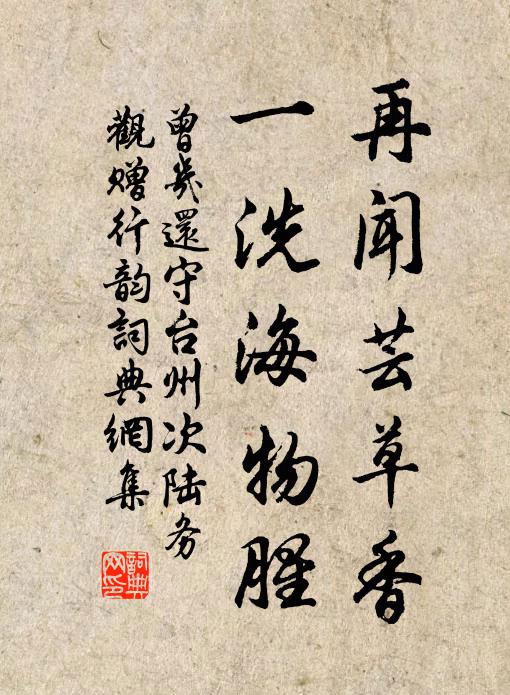 再闻芸草香
一洗海物腥
曾几還守台州次陆务
觀赠行韵詞典網集
詞典网印